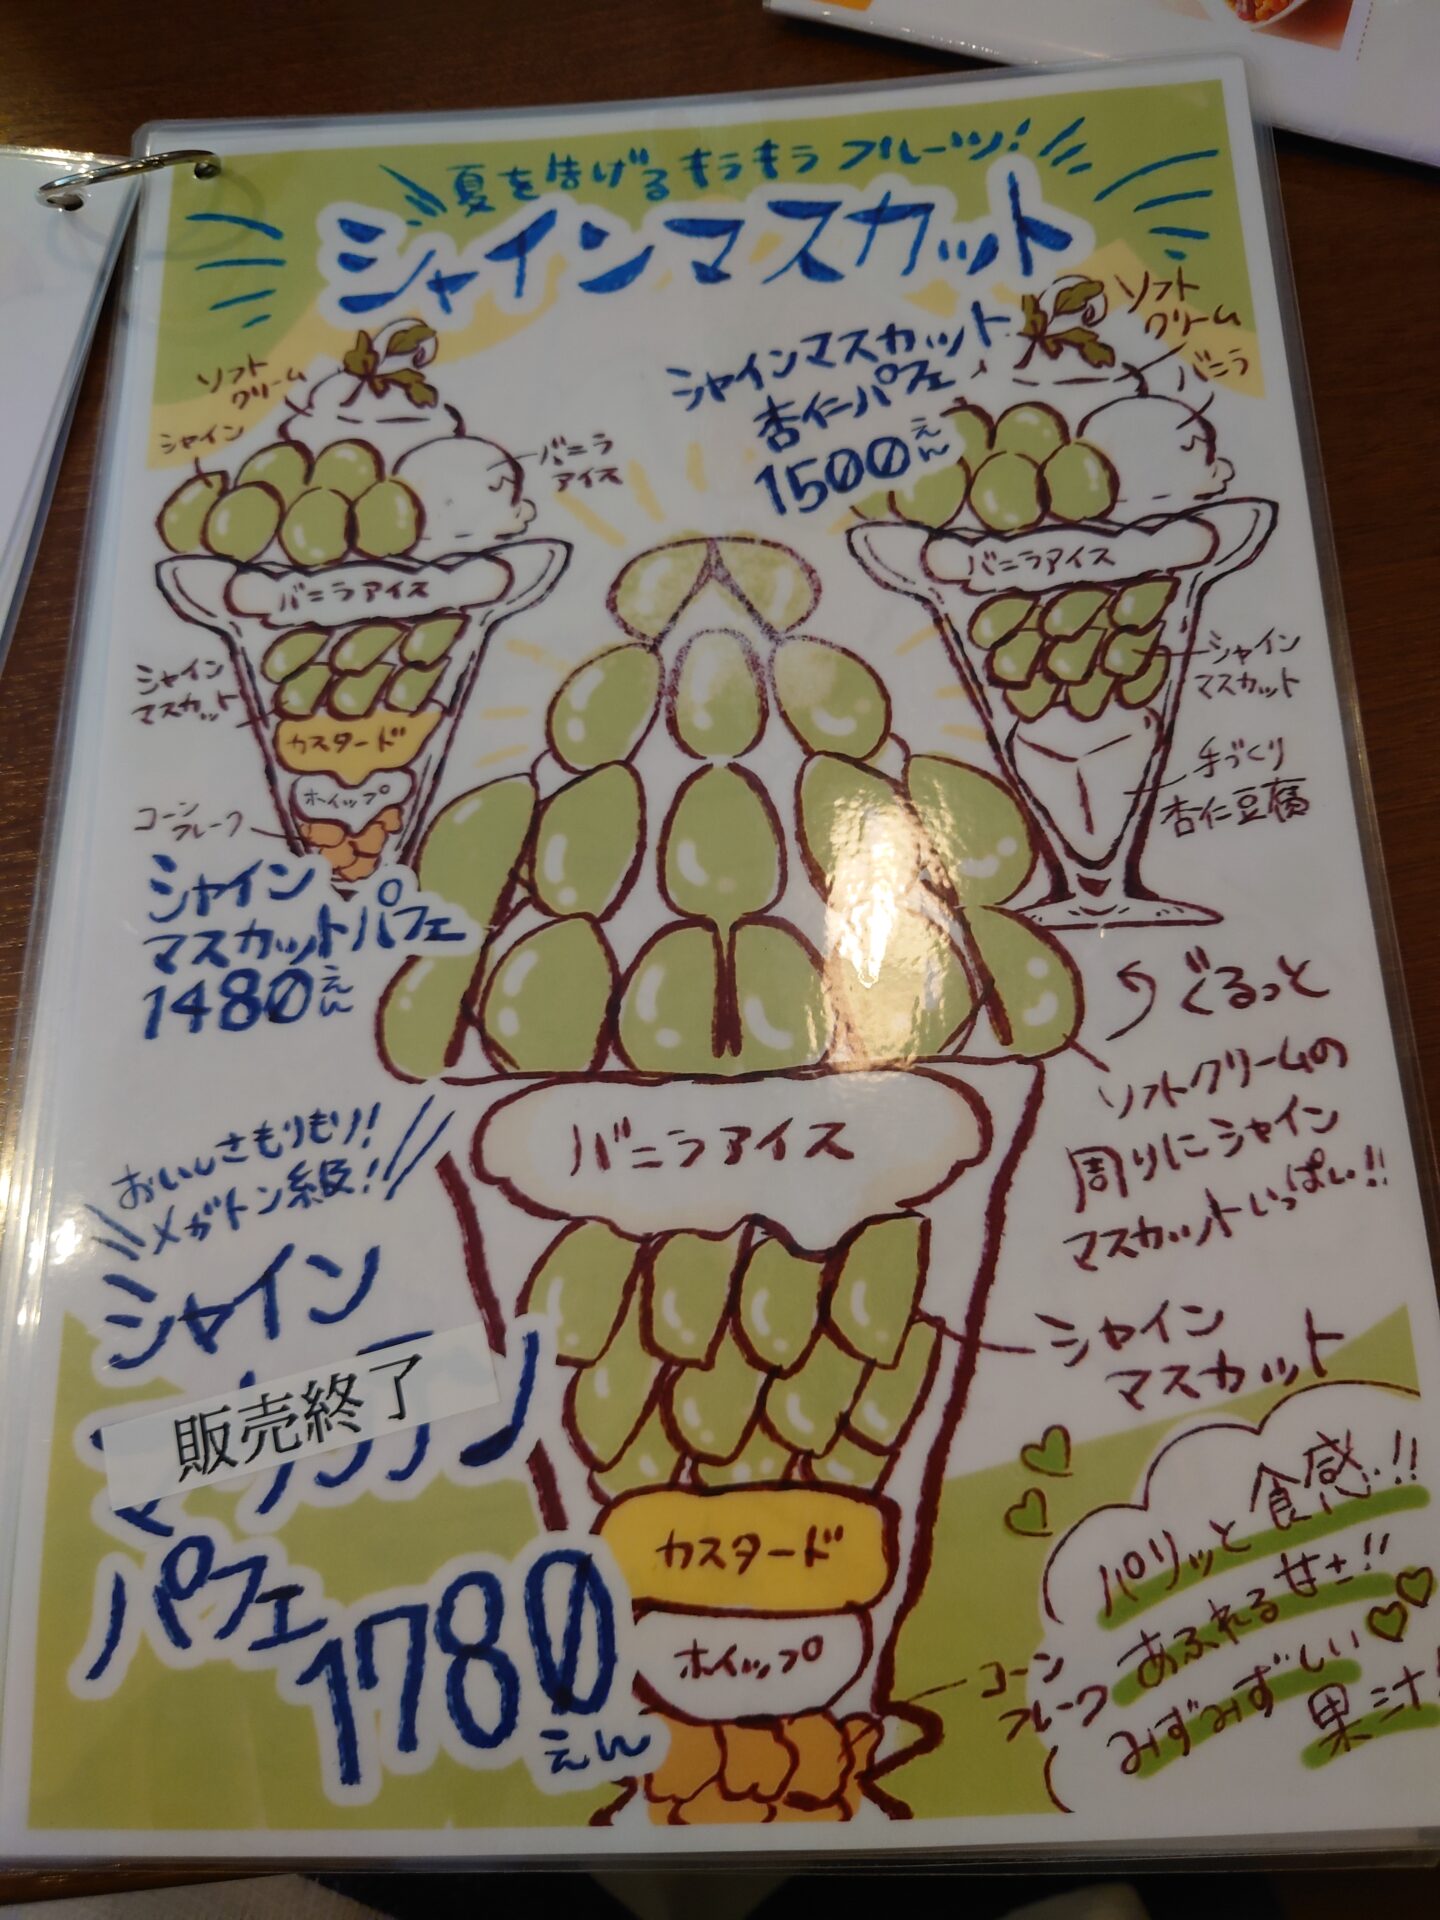 夏を告げるもうもうフルーツ!
シャインマスカット
ソフト
クリーム
シャイン
バニラ
アイス
バニラアイス
シャイン
マスカット
カスタード
ホイップ
コーン
フレーク
シャイン
マスカットパフェ
1480えん
シャインマスカット
杏仁パフェ
1500えん
ソフト
クリーム
バニラ
バニラアイス
シャイン
マスカット
手づくり
杏仁豆腐
ぐるっと
ソフトクリームの
周りにシャイン
マスカットいっぱい!!
バニラアイス
シャイン
マスカット
カスタード
ホイップ
コーン
フレーク
おいしさもりもり!
メガトン級!
シャイン
販売終了
パフェ
1780
えん
パリッと食感!!
あふれる甘さ!!
みずみずしい
果汁!